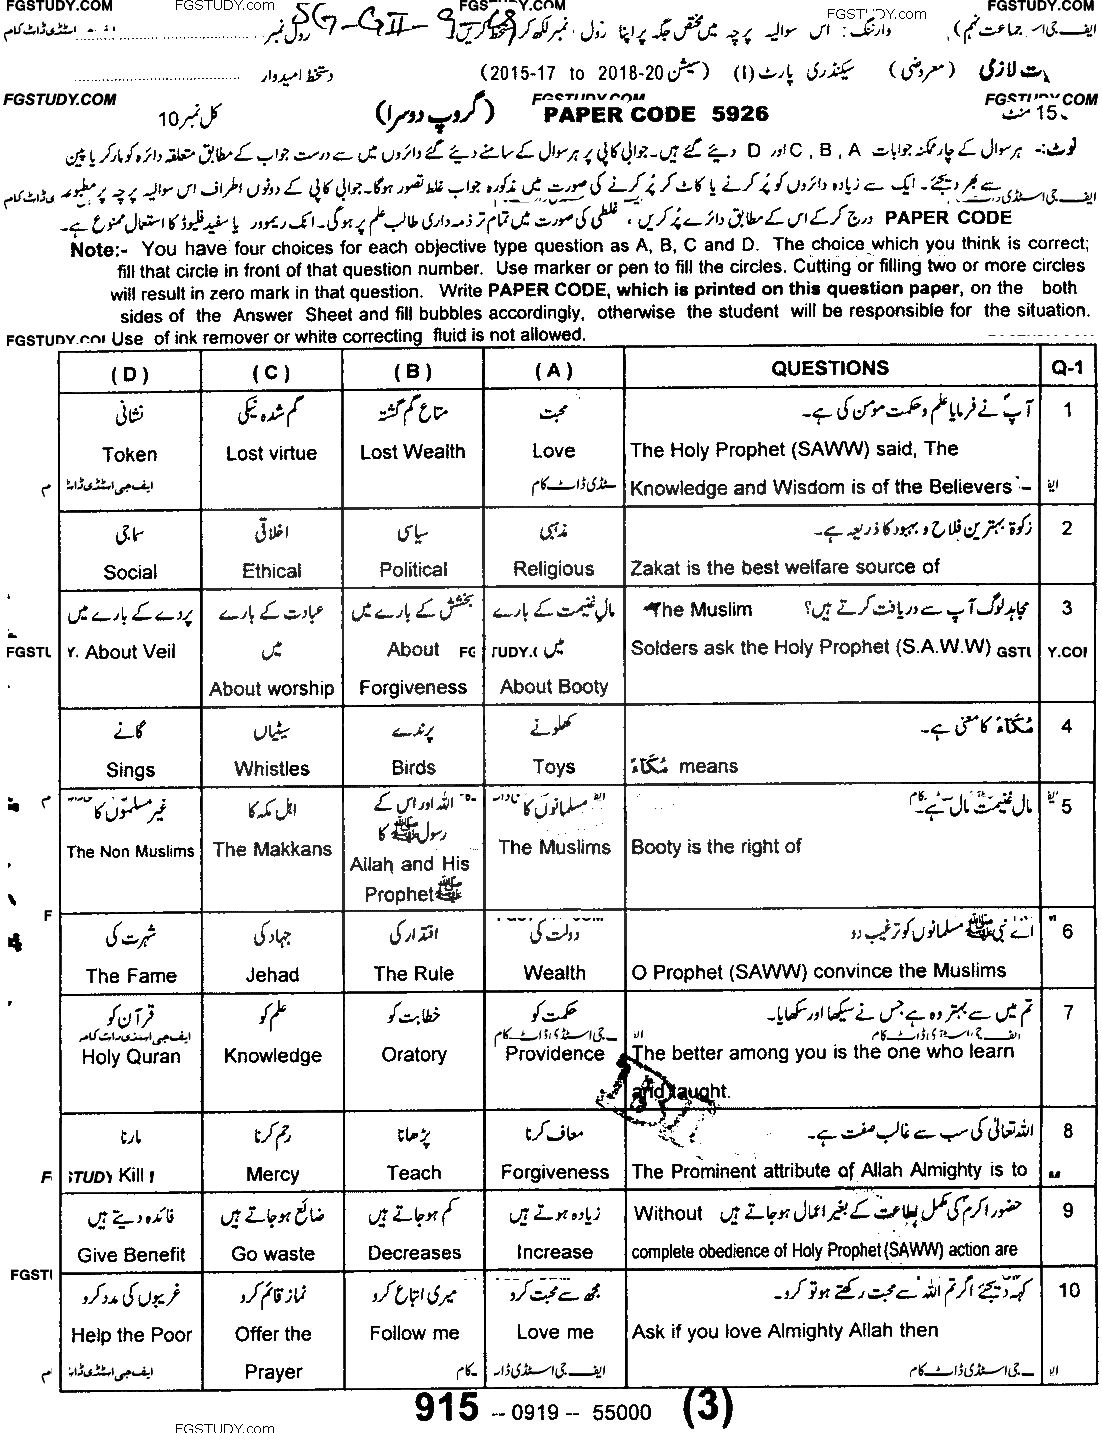 FGSTUDY.COM FGSTUDY.COM FGSTUDY.com FGSTUDY.COM
SG-GII-9-18
وارننگ: اس سوالیہ پرچہ میں مختص جگہ پر اپنا رول نمبر لکھ کر دستخط کریں رول نمبر
(سیکنڈری پارٹ (I) (سیشن 2015-17 to 2018-20 دستخط امیدوار
ات لازمی (معروضی)
FGSTUDY.COM FGSTUDY.COM FGSTUDY.COM
15 منٹ PAPER CODE 5926 (گروپ دوسرا) کل نمبر 10
نوٹ:- ہر سوال کے چار ممکنہ جوابات A , B , C اور D دیئے گئے ہیں۔ جوابی کاپی پر ہر سوال کے سامنے دیئے گئے دائروں میں سے درست جواب کے مطابق متعلقہ دائرہ کو مارکر یا پین
سے بھر دیجئے۔ ایک سے زیادہ دائروں کو پُر کرنے یا کاٹ کر پُر کرنے کی صورت میں مذکورہ جواب غلط تصور ہوگا۔ جوابی کاپی کے دونوں اطراف اس سوالیہ پرچہ پر مطبوعہ
PAPER CODE درج کر کے اس کے مطابق دائرے پُر کریں، غلطی کی صورت میں تمام تر ذمہ داری طالب علم پر ہوگی۔ انک ریموور یا سفید فلیوڈ کا استعمال ممنوع ہے۔
Note:- You have four choices for each objective type question as A, B, C and D. The choice which you think is correct;
fill that circle in front of that question number. Use marker or pen to fill the circles. Cutting or filling two or more circles
will result in zero mark in that question. Write PAPER CODE, which is printed on this question paper, on the both
sides of the Answer Sheet and fill bubbles accordingly, otherwise the student will be responsible for the situation.
Use of ink remover or white correcting fluid is not allowed.
( D ) ( C ) ( B ) ( A ) QUESTIONS Q-1
نشانی گم شدہ نیکی متاع گم گشتہ محبت آپؐ نے فرمایا علم و حکمت مومن کی ہے۔ 1
Token Lost virtue Lost Wealth Love The Holy Prophet (SAWW) said, The
Knowledge and Wisdom is of the Believers -
سماجی اخلاقی سیاسی مذہبی زکوٰۃ بہترین فلاح و بہبود کا ذریعہ ہے۔ 2
Social Ethical Political Religious Zakat is the best welfare source of
پردے کے بارے میں عبادت کے بارے بخشش کے بارے میں مال غنیمت کے بارے مجاہد لوگ آپ سے دریافت کرتے ہیں؟ The Muslim 3
About Veil میں About میں Solders ask the Holy Prophet (S.A.W.W)
About worship Forgiveness About Booty
گانے سیٹیاں پرندے کھلونے مُكَآءً کا معنی ہے۔ 4
Sings Whistles Birds Toys مُكَآءً means
غیر مسلموں کا اہل مکہ کا اللہ اور اس کے رسول ﷺ کا مسلمانوں کا مال غنیمت مال ہے۔ 5
The Non Muslims The Makkans Allah and His The Muslims Booty is the right of
Prophet ﷺ
شہرت کی جہاد کی اقتدار کی دولت کی اے نبی ﷺ مسلمانوں کو ترغیب دو 6
The Fame Jehad The Rule Wealth O Prophet (SAWW) convince the Muslims
قرآن کو علم کو خطابت کو حکمت کو تم میں سے بہتر وہ ہے جس نے سیکھا اور سکھایا۔ 7
Holy Quran Knowledge Oratory Providence The better among you is the one who learn
and taught.
مارنا رحم کرنا پڑھانا معاف کرنا اللہ تعالیٰ کی سب سے غالب صفت ہے۔ 8
Kill Mercy Teach Forgiveness The Prominent attribute of Allah Almighty is to
فائدہ دیتے ہیں ضائع ہو جاتے ہیں کم ہو جاتے ہیں زیادہ ہوتے ہیں حضور اکرمؐ کی مکمل اطاعت کے بغیر اعمال ہو جاتے ہیں Without 9
Give Benefit Go waste Decreases Increase complete obedience of Holy Prophet (SAWW) action are
غریبوں کی مدد کرو نماز قائم کرو میری اتباع کرو مجھ سے محبت کرو کہہ دیجئے اگر تم اللہ سے محبت رکھتے ہو تو کرو۔ 10
Help the Poor Offer the Follow me Love me Ask if you love Almighty Allah then
Prayer
915 -- 0919 -- 55000 (3)
FGSTUDY.com